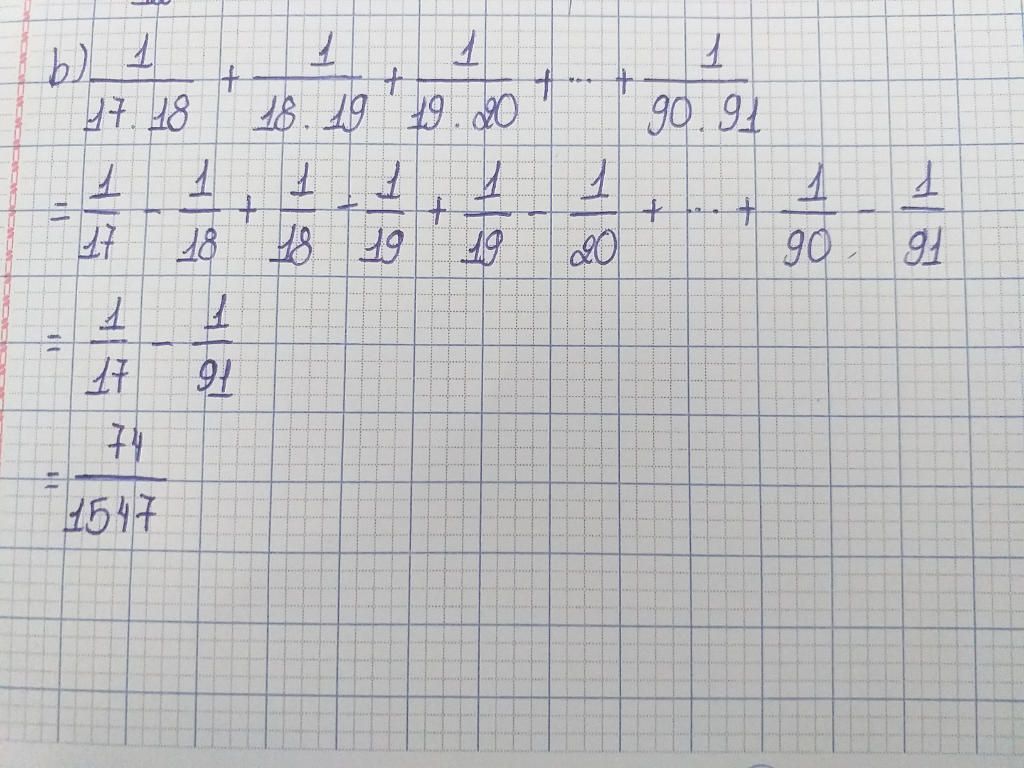 b) 1/17.18 + 1/18.19 + 1/19.20 + ... + 1/90.91
= 1/17 - 1/18 + 1/18 - 1/19 + 1/19 - 1/20 + ... + 1/90 - 1/91
= 1/17 - 1/91
= 74/1547